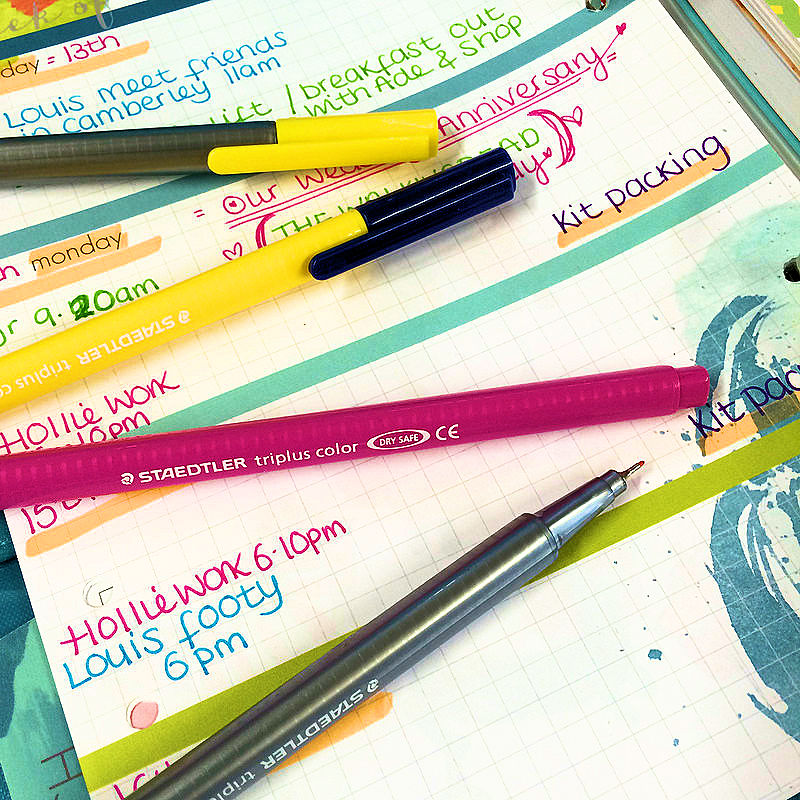 ek of
day = 13th
Louis meet friends
in camberley 11am
lift / breakfast out
with Ade & shop
= Our Wedding Anniversary =
THE WALKING DEAD
day
Kit packing
monday
9.20am
STAEDTLER triplus co
Hollie work
10pm
STAEDTLER triplus color DRY SAFE CE
Kit pac
15
Hollie work 6-10pm
Louis footy
6pm
STAEDTLER triplus